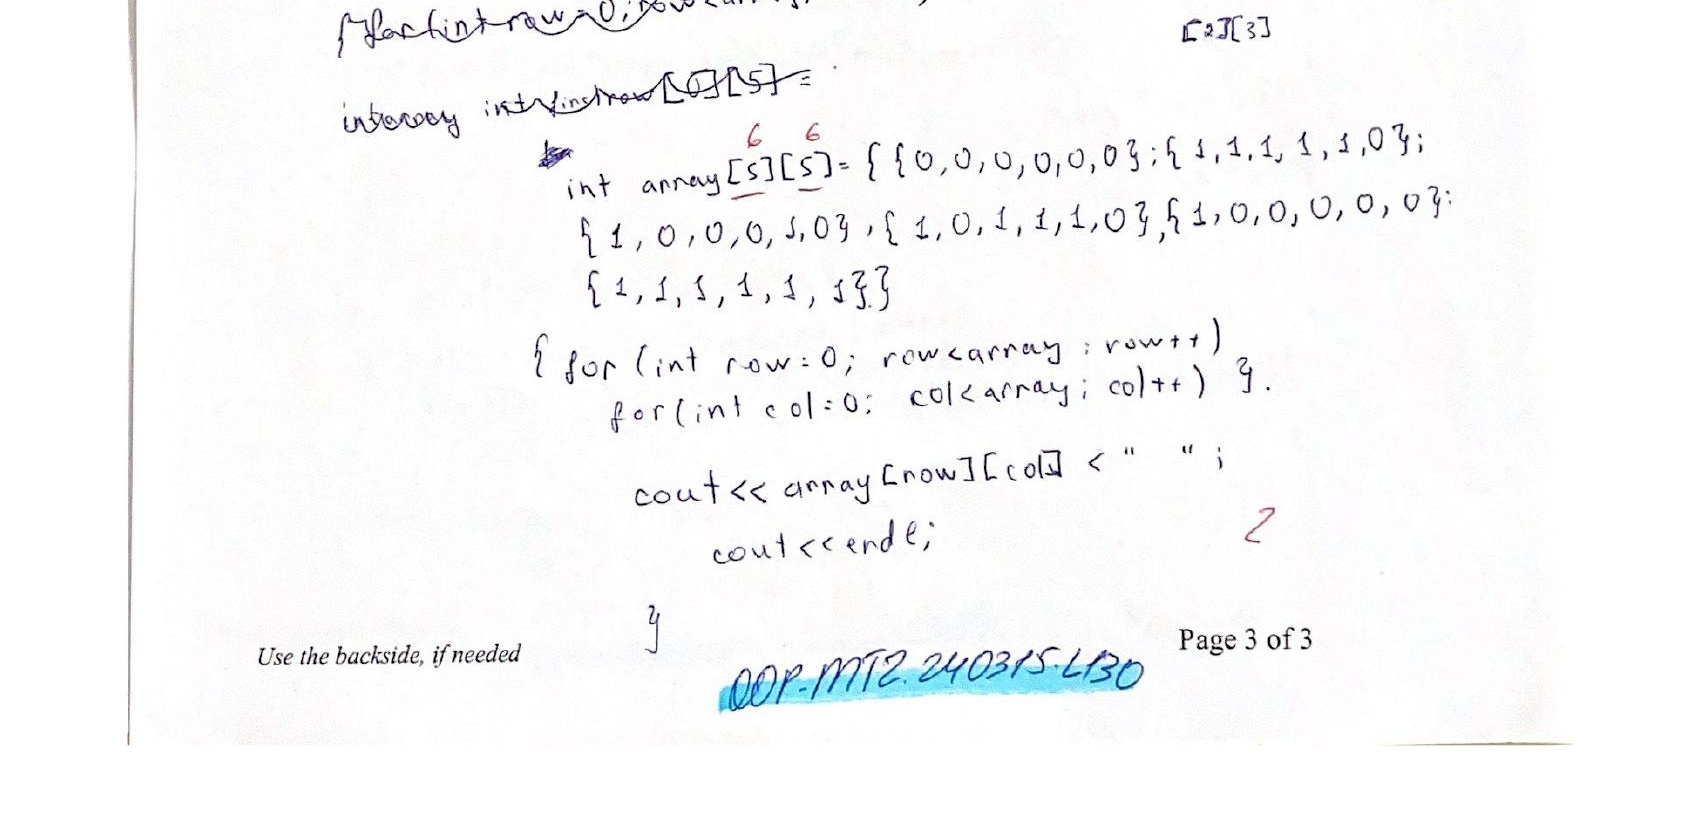 { for(int row=0; row<array;
[2][3]
int array int firstrow[6][5] =
6 6
int array[5][5]= { {0,0,0,0,0,0};{ 1,1,1,1,1,0};
{ 1,0,0,0,1,0} ,{ 1,0,1,1,1,0},{ 1,0,0,0,0,0};
{ 1,1,1,1,1,1}}
{ for (int row=0; row<array ; row++)
for(int col=0; col<array; col++) }.
cout<< array [row][col] < " " ;
cout<<endl;
2
}
Use the backside, if needed
Page 3 of 3
OOP-MT2.240315-LB0